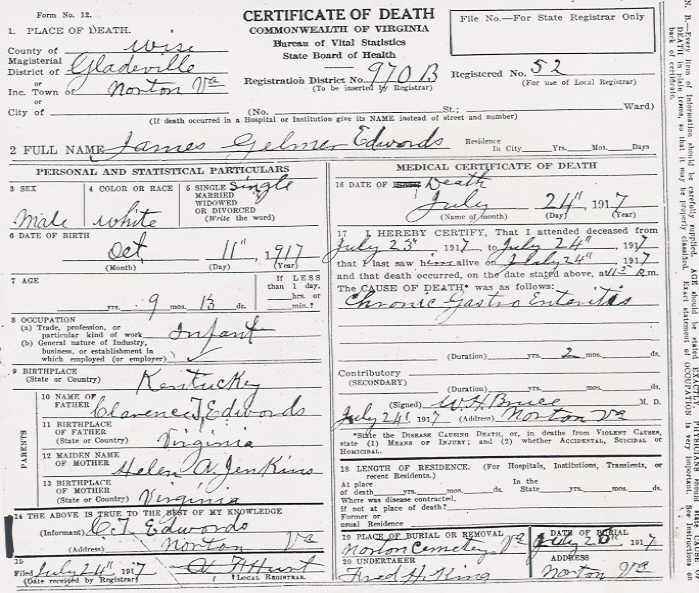 Form No. 12.
CERTIFICATE OF DEATH
COMMONWEALTH OF VIRGINIA
Bureau of Vital Statistics
State Board of Health
File No.—For State Registrar Only
1. PLACE OF DEATH.
County of Wise
Magisterial
District of Gladeville
or
Inc. Town of Norton Va
or
City of
Registration District No. 970 B
(To be inserted by Registrar)
Registered No. 52
(For use of Local Registrar)
(No. St.; Ward)
(If death occurred in a Hospital or Institution give its NAME instead of street and number)
2 FULL NAME James Gelmer Edwords
Residence
In City Yrs. Mos. Days
PERSONAL AND STATISTICAL PARTICULARS
3 SEX
Male
4 COLOR OR RACE
white
5 SINGLE Single
MARRIED
WIDOWED
OR DIVORCED
(Write the word)
6 DATE OF BIRTH
Oct 11" 1917
(Month) (Day) (Year)
7 AGE
yrs. 9 mos. 13 ds.
If LESS
than 1 day,
hrs. or
min.?
8 OCCUPATION
(a) Trade, profession, or
particular kind of work Infant
(b) General nature of Industry,
business, or establishment in
which employed (or employer)
9 BIRTHPLACE
(State or Country) Kentuckey
PARENTS
10 NAME OF
FATHER Clarence T. Edwords
11 BIRTHPLACE
OF FATHER
(State or Country) Virginia
12 MAIDEN NAME
OF MOTHER Helen A. Jenkins
13 BIRTHPLACE
OF MOTHER
(State or Country) Virginia
14 THE ABOVE IS TRUE TO THE BEST OF MY KNOWLEDGE
(Informant) C. T. Edwords
(Address) Norton Va
15
Filed July 24" 1917
(Date received by Registrar)
Hurst
LOCAL REGISTRAR.
MEDICAL CERTIFICATE OF DEATH
16 DATE OF Death
July 24" 1917
(Name of month) (Day) (Year)
17 I HEREBY CERTIFY, That I attended deceased from
July 23" 1917 to July 24" 1917
that I last saw alive on July 24" 1917
and that death occurred, on the date stated above, at m.
The CAUSE OF DEATH* was as follows:
Chronic Gastro Enteritis
(Duration) yrs. 2 mos. ds.
Contributory
(SECONDARY)
(Duration) yrs. mos. ds.
(Signed) W. H. Bruce M. D.
July 24" 1917 (Address) Norton Va
*State the DISEASE CAUSING DEATH, or, in deaths from VIOLENT CAUSES,
state (1) MEANS OF INJURY; and (2) whether ACCIDENTAL, SUICIDAL or
HOMICIDAL.
18 LENGTH OF RESIDENCE. (For Hospitals, Institutions, Transients, or
recent Residents.)
At place
of death yrs. mos. ds.
In the
State yrs. mos. ds.
Where was disease contracted,
if not at place of death?
Former or
usual Residence
19 PLACE OF BURIAL OR REMOVAL
Norton Cemetery Va
DATE OF BURIAL
July 26" 1917
20 UNDERTAKER
Fred H. King
ADDRESS
Norton Va
N. B.—Every item of Information should be carefully supplied. AGE should be stated EXACTLY. PHYSICIANS should state CAUSE OF
DEATH in plain terms, so that it may be properly classified. Exact statement of OCCUPATION is very important. See Instructions on
back of certificate.